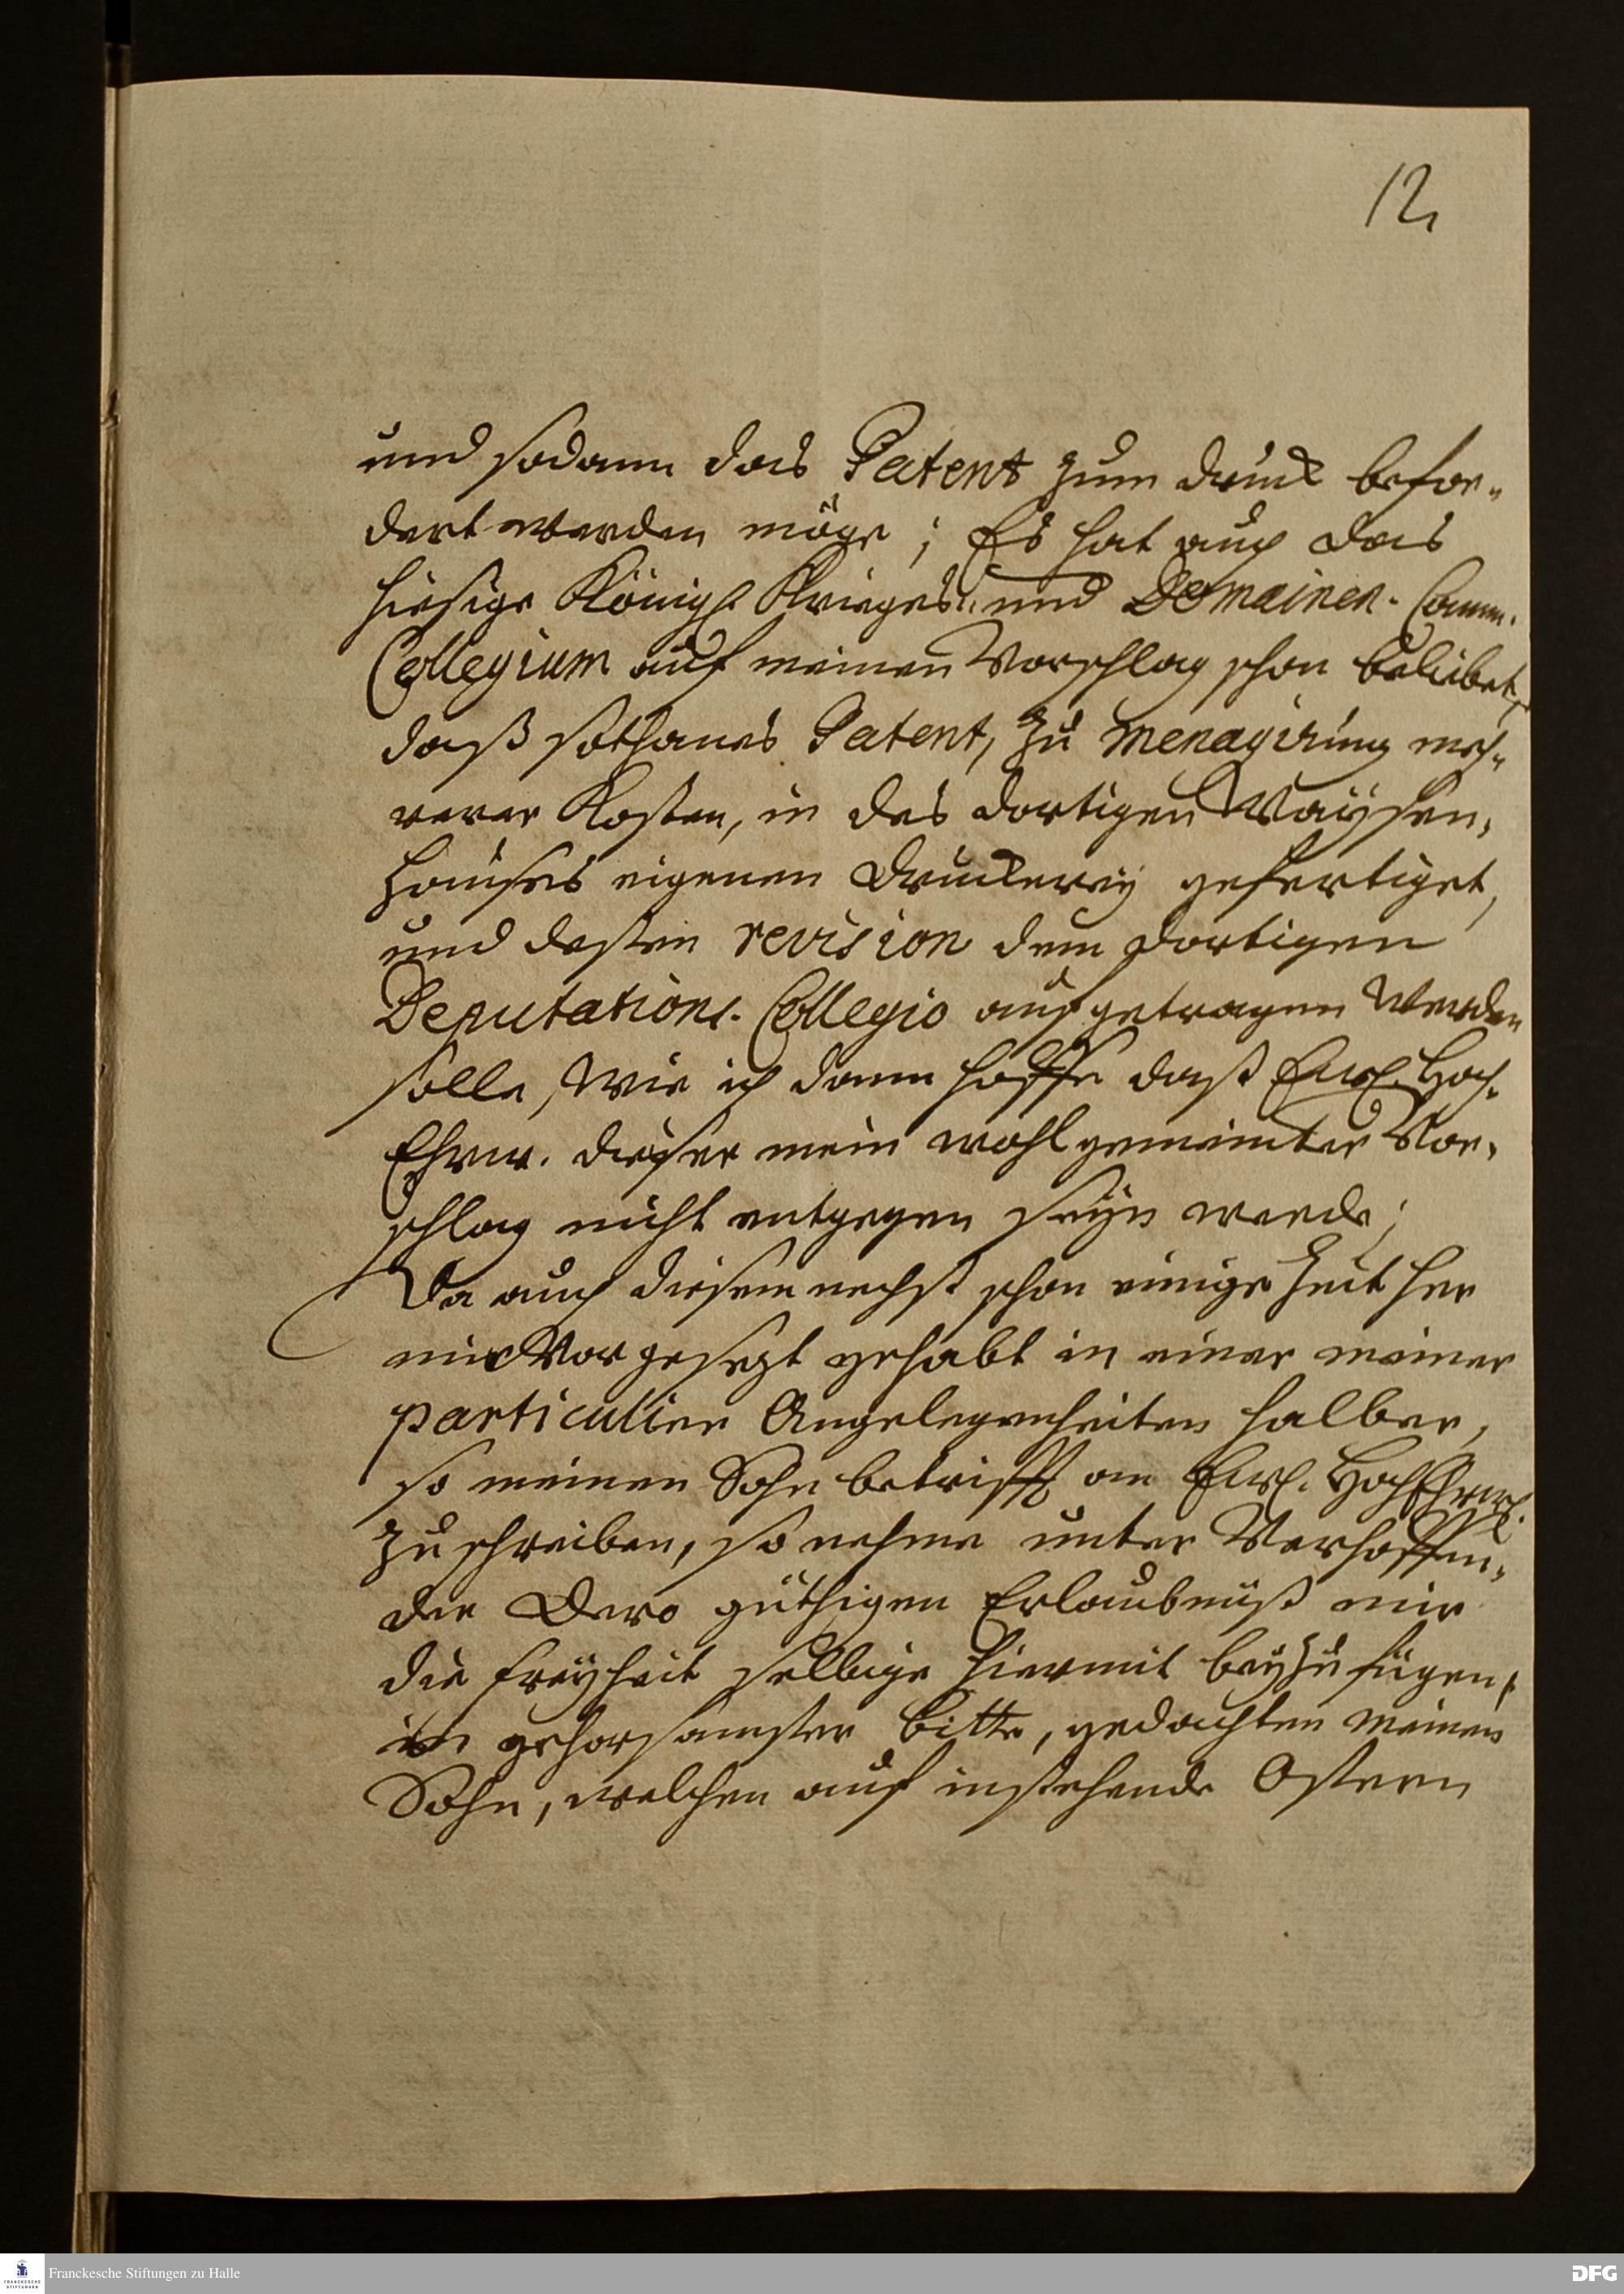 12
und sodann das Patent zum druck befor-
dert werden möge; Es hat auch das
hiesige Königl. Krieges- und Domainen-Camm.
Collegium auf meinen Vorschlag schon beliebet,
daß sothanes Patent, zu menagirung meh-
rerer Kosten, in des dortigen Waÿsen-
Hauses eigenen Druckereÿ gefertiget,
und deßen revision dem dortigen
Deputations-Collegio aufgetragen werden
solle, Wie ich dann hoffe daß Ewl. Hoch-
Ehrw. dieser mein wohlgemeinter Vor-
schlag nicht entgegen seÿn werde;
Da auch diesem nechst schon einige Zeit her
mir vorgesezt gehabt in einer meiner
particulier Angelegenheiten halber,
so meinen Sohn betrifft an Ewl. HochEhrwl.
zu schreiben, so nehme unter Verhoffen-
der Dero güthigen Erlaubnüß mir
die freÿheit selbige hiermit beÿzufügen,
in gehorsamster bitte, gedachten meinen
Sohn, welchen auf instehende Ostern
Franckesche Stiftungen zu Halle
DFG